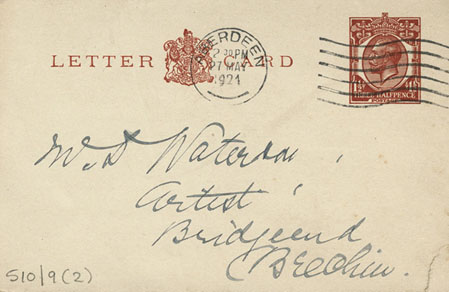 LETTER CARD
ABERDEEN
2 30 PM
27 MAY
1921
THREE HALFPENCE
POSTAGE
W. D Waterson
Artist
Bridgeend
Brechin.
510/9(2)